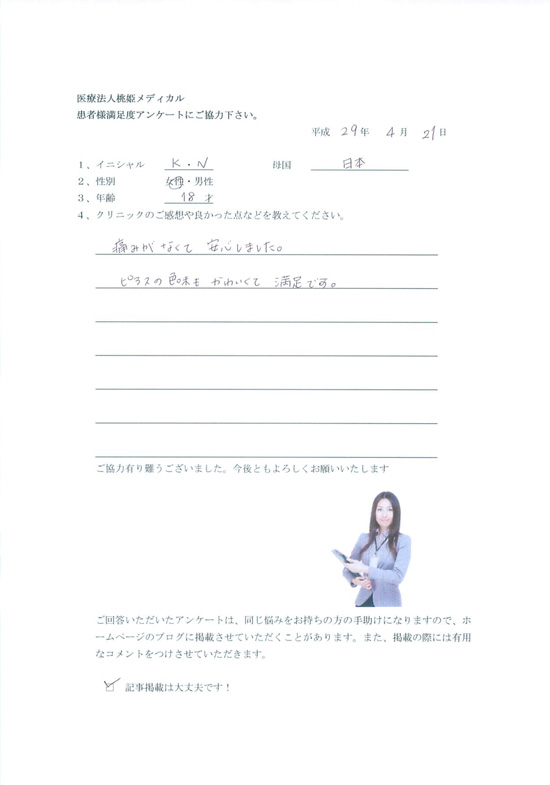 医療法人桃姫メディカル
患者様満足度アンケートにご協力下さい。
平成 29年 4月 21日
1、イニシャル K・N 母国 日本
2、性別 女性・男性
3、年齢 18才
4、クリニックのご感想や良かった点などを教えてください。
痛みがなくて 安心しました。
ピアスの色味も かわいくて 満足です。
ご協力有り難うございました。今後ともよろしくお願いいたします
ご回答いただいたアンケートは、同じ悩みをお持ちの方の手助けになりますので、ホ
ームページのブログに掲載させていただくことがあります。また、掲載の際には有用
なコメントをつけさせていただきます。
記事掲載は大丈夫です！